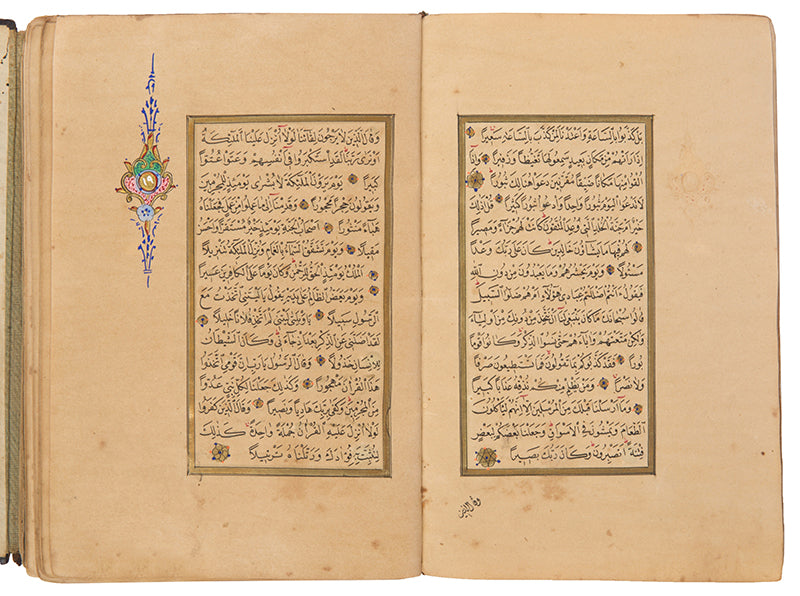 بَلْ كَذَّبُوا بِالسَّاعَةِ وَاَعْتَدْنَا لِمَنْ كَذَّبَ بِالسَّاعَةِ سَعِيرًا
اِذَا رَاَتْهُمْ مِنْ مَكَانٍ بَعِيدٍ سَمِعُوا لَهَا تَغَيُّظًا وَزَفِيرًا وَاِذَا
اُلْقُوا مِنْهَا مَكَانًا ضَيِّقًا مُقَرَّنِينَ دَعَوْا هُنَالِكَ ثُبُورًا
لَا تَدْعُوا الْيَوْمَ ثُبُورًا وَاحِدًا وَادْعُوا ثُبُورًا كَثِيرًا قُلْ اَذٰلِكَ
خَيْرٌ اَمْ جَنَّةُ الْخُلْدِ الَّتِي وُعِدَ الْمُتَّقُونَ كَانَتْ لَهُمْ جَزَاءً وَمَصِيرًا
لَهُمْ فِيهَا مَا يَشَاؤُنَ خَالِدِينَ كَانَ عَلَى رَبِّكَ وَعْدًا
مَسْئُولًا وَيَوْمَ يَحْشُرُهُمْ وَمَا يَعْبُدُونَ مِنْ دُونِ اللّٰهِ
فَيَقُولُ ءَاَنْتُمْ اَضْلَلْتُمْ عِبَادِي هٰؤُلَاءِ اَمْ هُمْ ضَلُّوا السَّبِيلَ
قَالُوا سُبْحَانَكَ مَا كَانَ يَنْبَغِي لَنَا اَنْ نَتَّخِذَ مِنْ دُونِكَ مِنْ اَوْلِيَاءَ
وَلٰكِنْ مَتَّعْتَهُمْ وَاٰبَاءَهُمْ حَتَّى نَسُوا الذِّكْرَ وَكَانُوا قَوْمًا
بُورًا فَقَدْ كَذَّبُوكُمْ بِمَا تَقُولُونَ فَمَا تَسْتَطِيعُونَ صَرْفًا
وَلَا نَصْرًا وَمَنْ يَظْلِمْ مِنْكُمْ نُذِقْهُ عَذَابًا كَبِيرًا
وَمَا اَرْسَلْنَا قَبْلَكَ مِنَ الْمُرْسَلِينَ اِلَّا اِنَّهُمْ لَيَاْكُلُونَ
الطَّعَامَ وَيَمْشُونَ فِي الْاَسْوَاقِ وَجَعَلْنَا بَعْضَكُمْ لِبَعْضٍ
فِتْنَةً اَتَصْبِرُونَ وَكَانَ رَبُّكَ بَصِيرًا
وقال الذين
وَقَالَ الَّذِينَ لَا يَرْجُونَ لِقَاءَنَا لَوْلَا اُنْزِلَ عَلَيْنَا الْمَلٰئِكَةُ
اَوْ نَرٰى رَبَّنَا لَقَدِ اسْتَكْبَرُوا فِي اَنْفُسِهِمْ وَعَتَوْا عُتُوًّا
كَبِيرًا يَوْمَ يَرَوْنَ الْمَلٰئِكَةَ لَا بُشْرٰى يَوْمَئِذٍ لِلْمُجْرِمِينَ
وَيَقُولُونَ حِجْرًا مَحْجُورًا وَقَدِمْنَا اِلٰى مَا عَمِلُوا مِنْ عَمَلٍ فَجَعَلْنَاهُ
هَبَاءً مَنْثُورًا اَصْحَابُ الْجَنَّةِ يَوْمَئِذٍ خَيْرٌ مُسْتَقَرًّا وَاَحْسَنُ
مَقِيلًا وَيَوْمَ تَشَقَّقُ السَّمَاءُ بِالْغَمَامِ وَنُزِّلَ الْمَلٰئِكَةُ تَنْزِيلًا
اَلْمُلْكُ يَوْمَئِذٍ الْحَقُّ لِلرَّحْمٰنِ وَكَانَ يَوْمًا عَلَى الْكَافِرِينَ عَسِيرًا
وَيَوْمَ يَعَضُّ الظَّالِمُ عَلٰى يَدَيْهِ يَقُولُ يَا لَيْتَنِي اتَّخَذْتُ مَعَ
الرَّسُولِ سَبِيلًا يَا وَيْلَتٰى لَيْتَنِي لَمْ اَتَّخِذْ فُلَانًا خَلِيلًا
لَقَدْ اَضَلَّنِي عَنِ الذِّكْرِ بَعْدَ اِذْ جَاءَنِي وَكَانَ الشَّيْطَانُ
لِلْاِنْسَانِ خَذُولًا وَقَالَ الرَّسُولُ يَا رَبِّ اِنَّ قَوْمِي اتَّخَذُوا
هٰذَا الْقُرْاٰنَ مَهْجُورًا وَكَذٰلِكَ جَعَلْنَا لِكُلِّ نَبِيٍّ عَدُوًّا
مِنَ الْمُجْرِمِينَ وَكَفٰى بِرَبِّكَ هَادِيًا وَنَصِيرًا وَقَالَ الَّذِينَ كَفَرُوا
لَوْلَا نُزِّلَ عَلَيْهِ الْقُرْاٰنُ جُمْلَةً وَاحِدَةً كَذٰلِكَ
لِنُثَبِّتَ بِهِ فُؤَادَكَ وَرَتَّلْنَاهُ تَرْتِيلًا